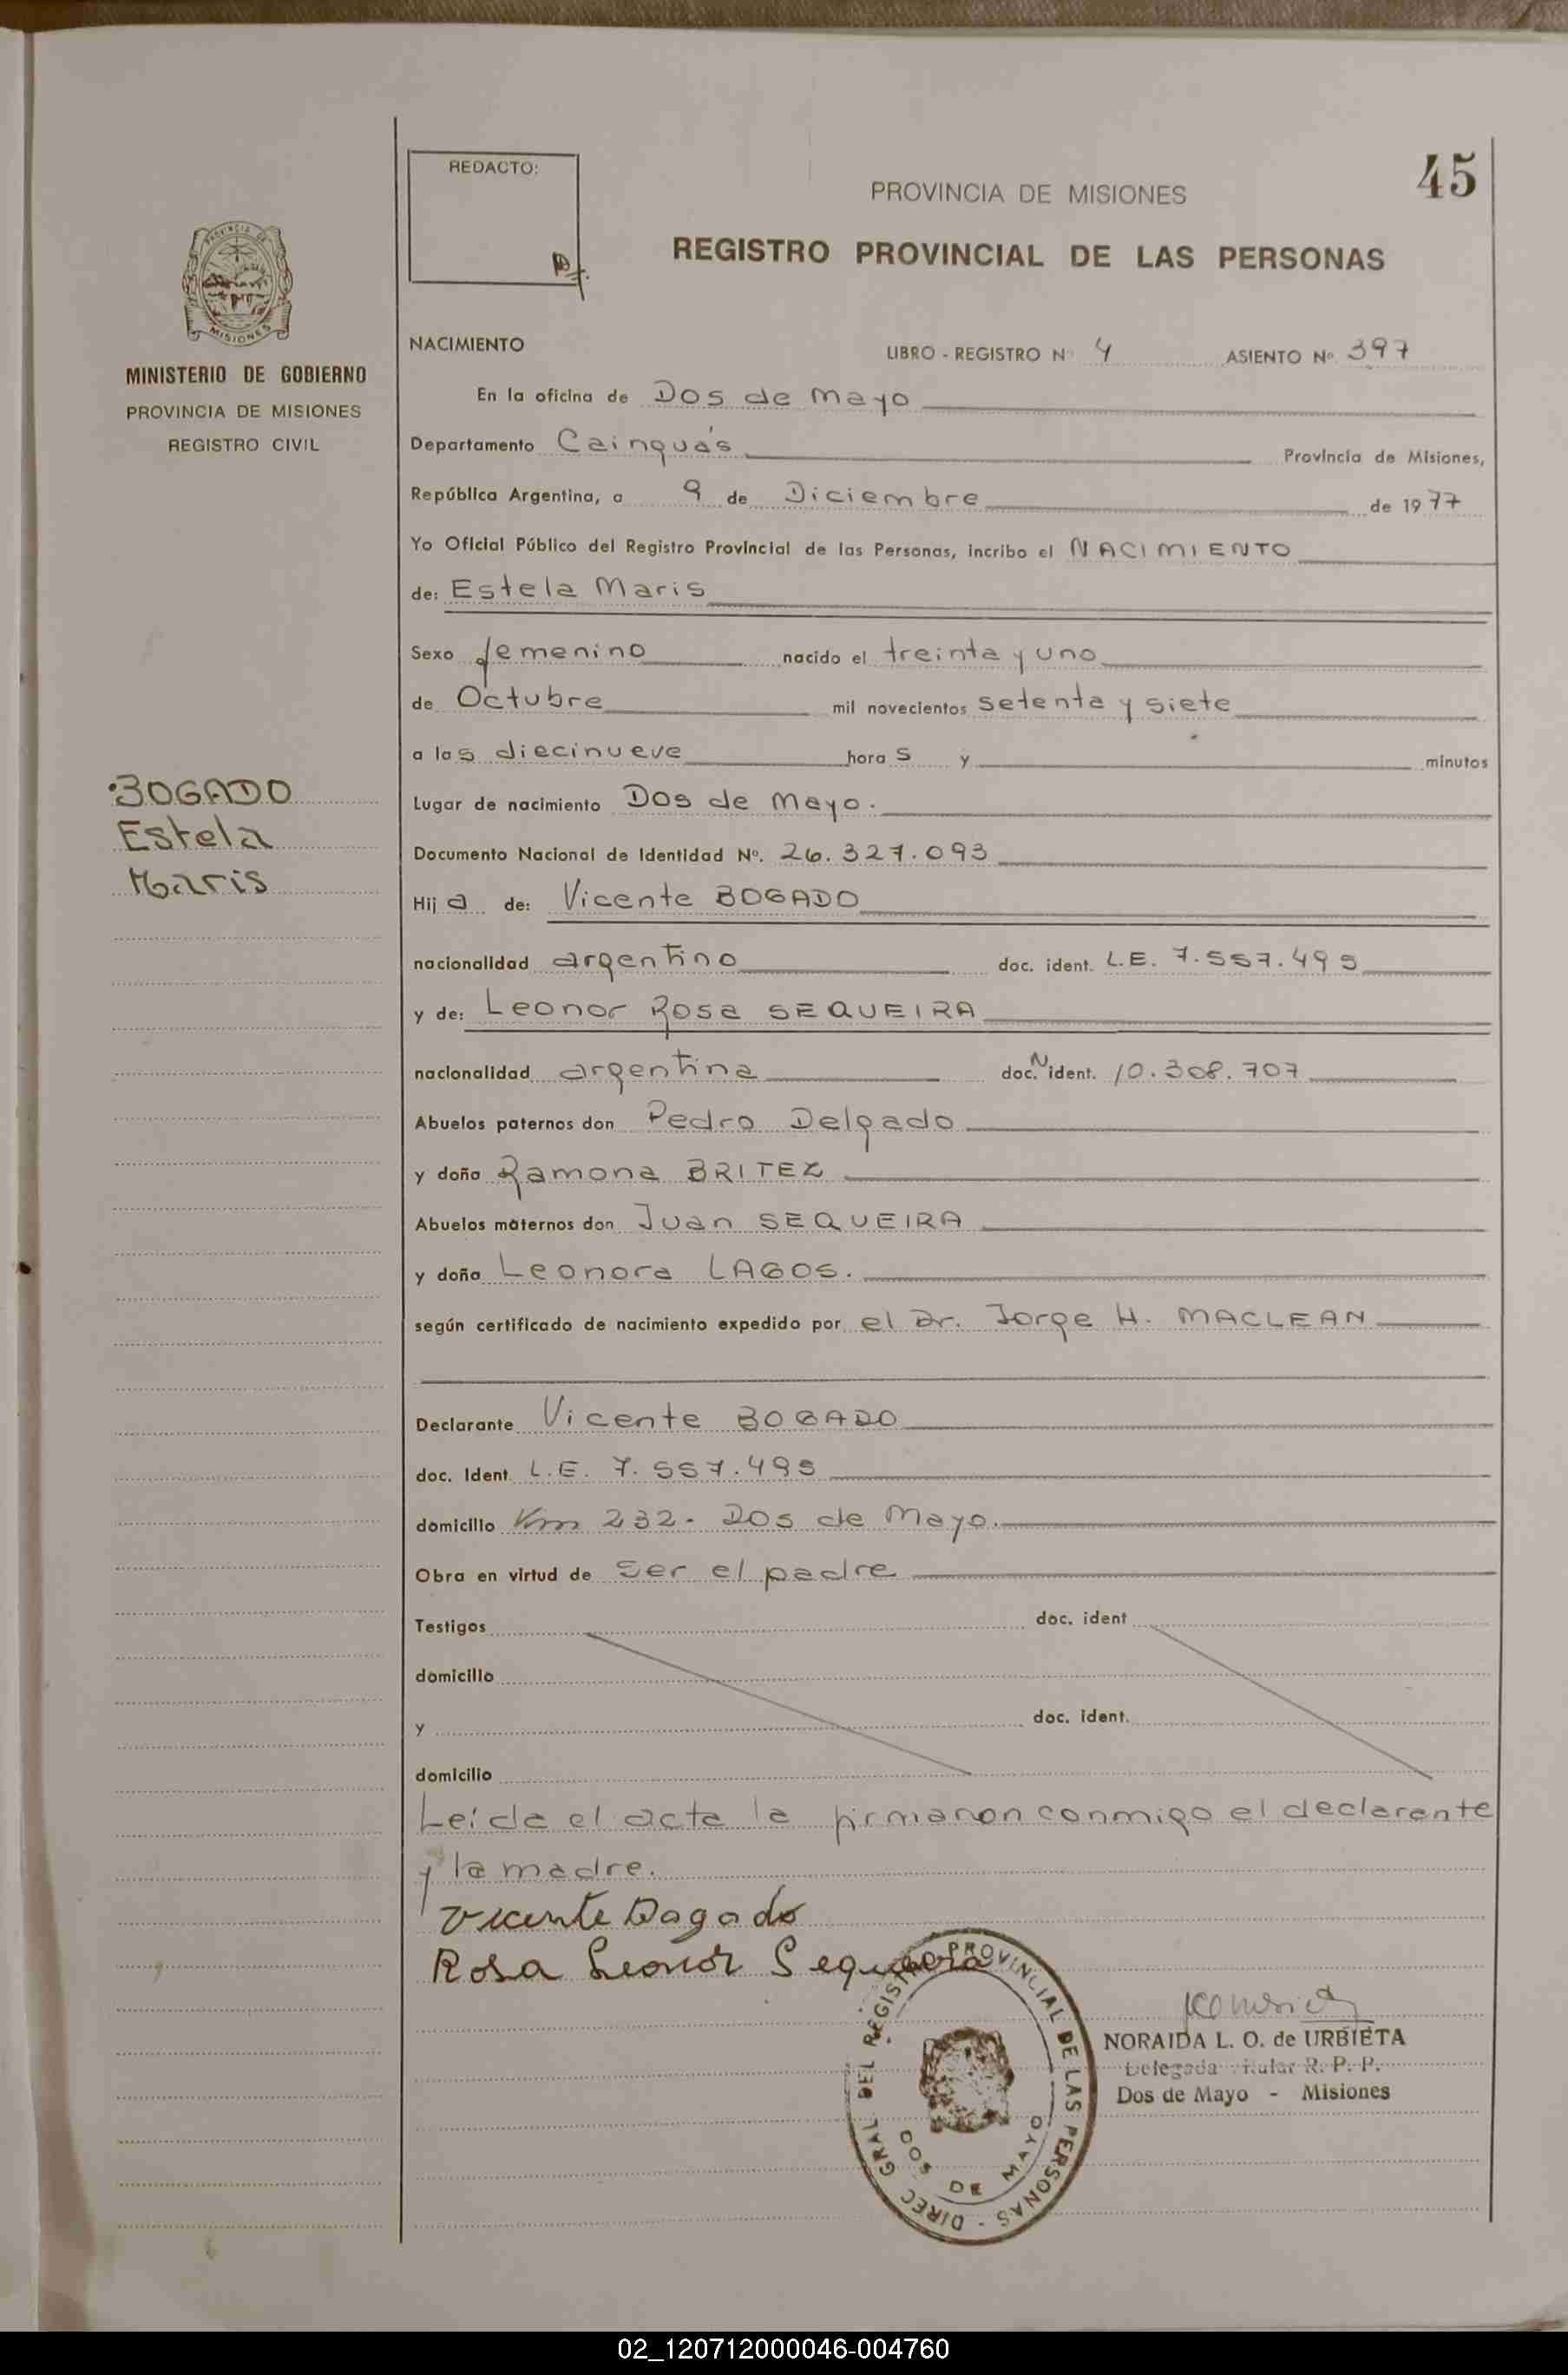 45
REDACTO:
PROVINCIA DE MISIONES
REGISTRO PROVINCIAL DE LAS PERSONAS
PROVINCIA DE
MISIONES
MINISTERIO DE GOBIERNO
PROVINCIA DE MISIONES
REGISTRO CIVIL
NACIMIENTO
LIBRO - REGISTRO Nº 4 ASIENTO Nº 397
En la oficina de Dos de Mayo
Departamento Cainguás Provincia de Misiones,
República Argentina, a 9 de Diciembre de 1977
Yo Oficial Público del Registro Provincial de las Personas, incribo el NACIMIENTO
de: Estela Maris
Sexo femenino nacido el treinta y uno
de Octubre mil novecientos setenta y siete
a las diecinueve horas y minutos
BOGADO
Estela
Maris
Lugar de nacimiento Dos de Mayo.
Documento Nacional de Identidad Nº. 26.327.093
Hija de: Vicente BOGADO
nacionalidad argentino doc. ident. L.E. 7.557.495
y de: Leonor Rosa SEQUEIRA
nacionalidad argentina doc. N ident. 10.308.707
Abuelos paternos don Pedro Delgado
y doña Ramona BRITEZ
Abuelos maternos don Juan SEQUEIRA
y doña Leonora LAGOS.
según certificado de nacimiento expedido por el Dr. Jorge H. MACLEAN
Declarante Vicente BOGADO
doc. Ident. L.E. 7.557.495
domicilio Km 232- Dos de Mayo.
Obra en virtud de ser el padre
Testigos doc. ident
domicilio
y doc. ident.
domicilio
Leída el acta la firmaron conmigo el declarante
y la madre.
Vicente Bogado
Rosa Leonor Sequeira
DIREC GRAL DEL REGISTRO PROVINCIAL DE LAS PERSONAS -
DOS DE MAYO
NORAIDA L. O. de URBIETA
Delegada Titular R. P. P.
Dos de Mayo - Misiones
02_120712000046-004760